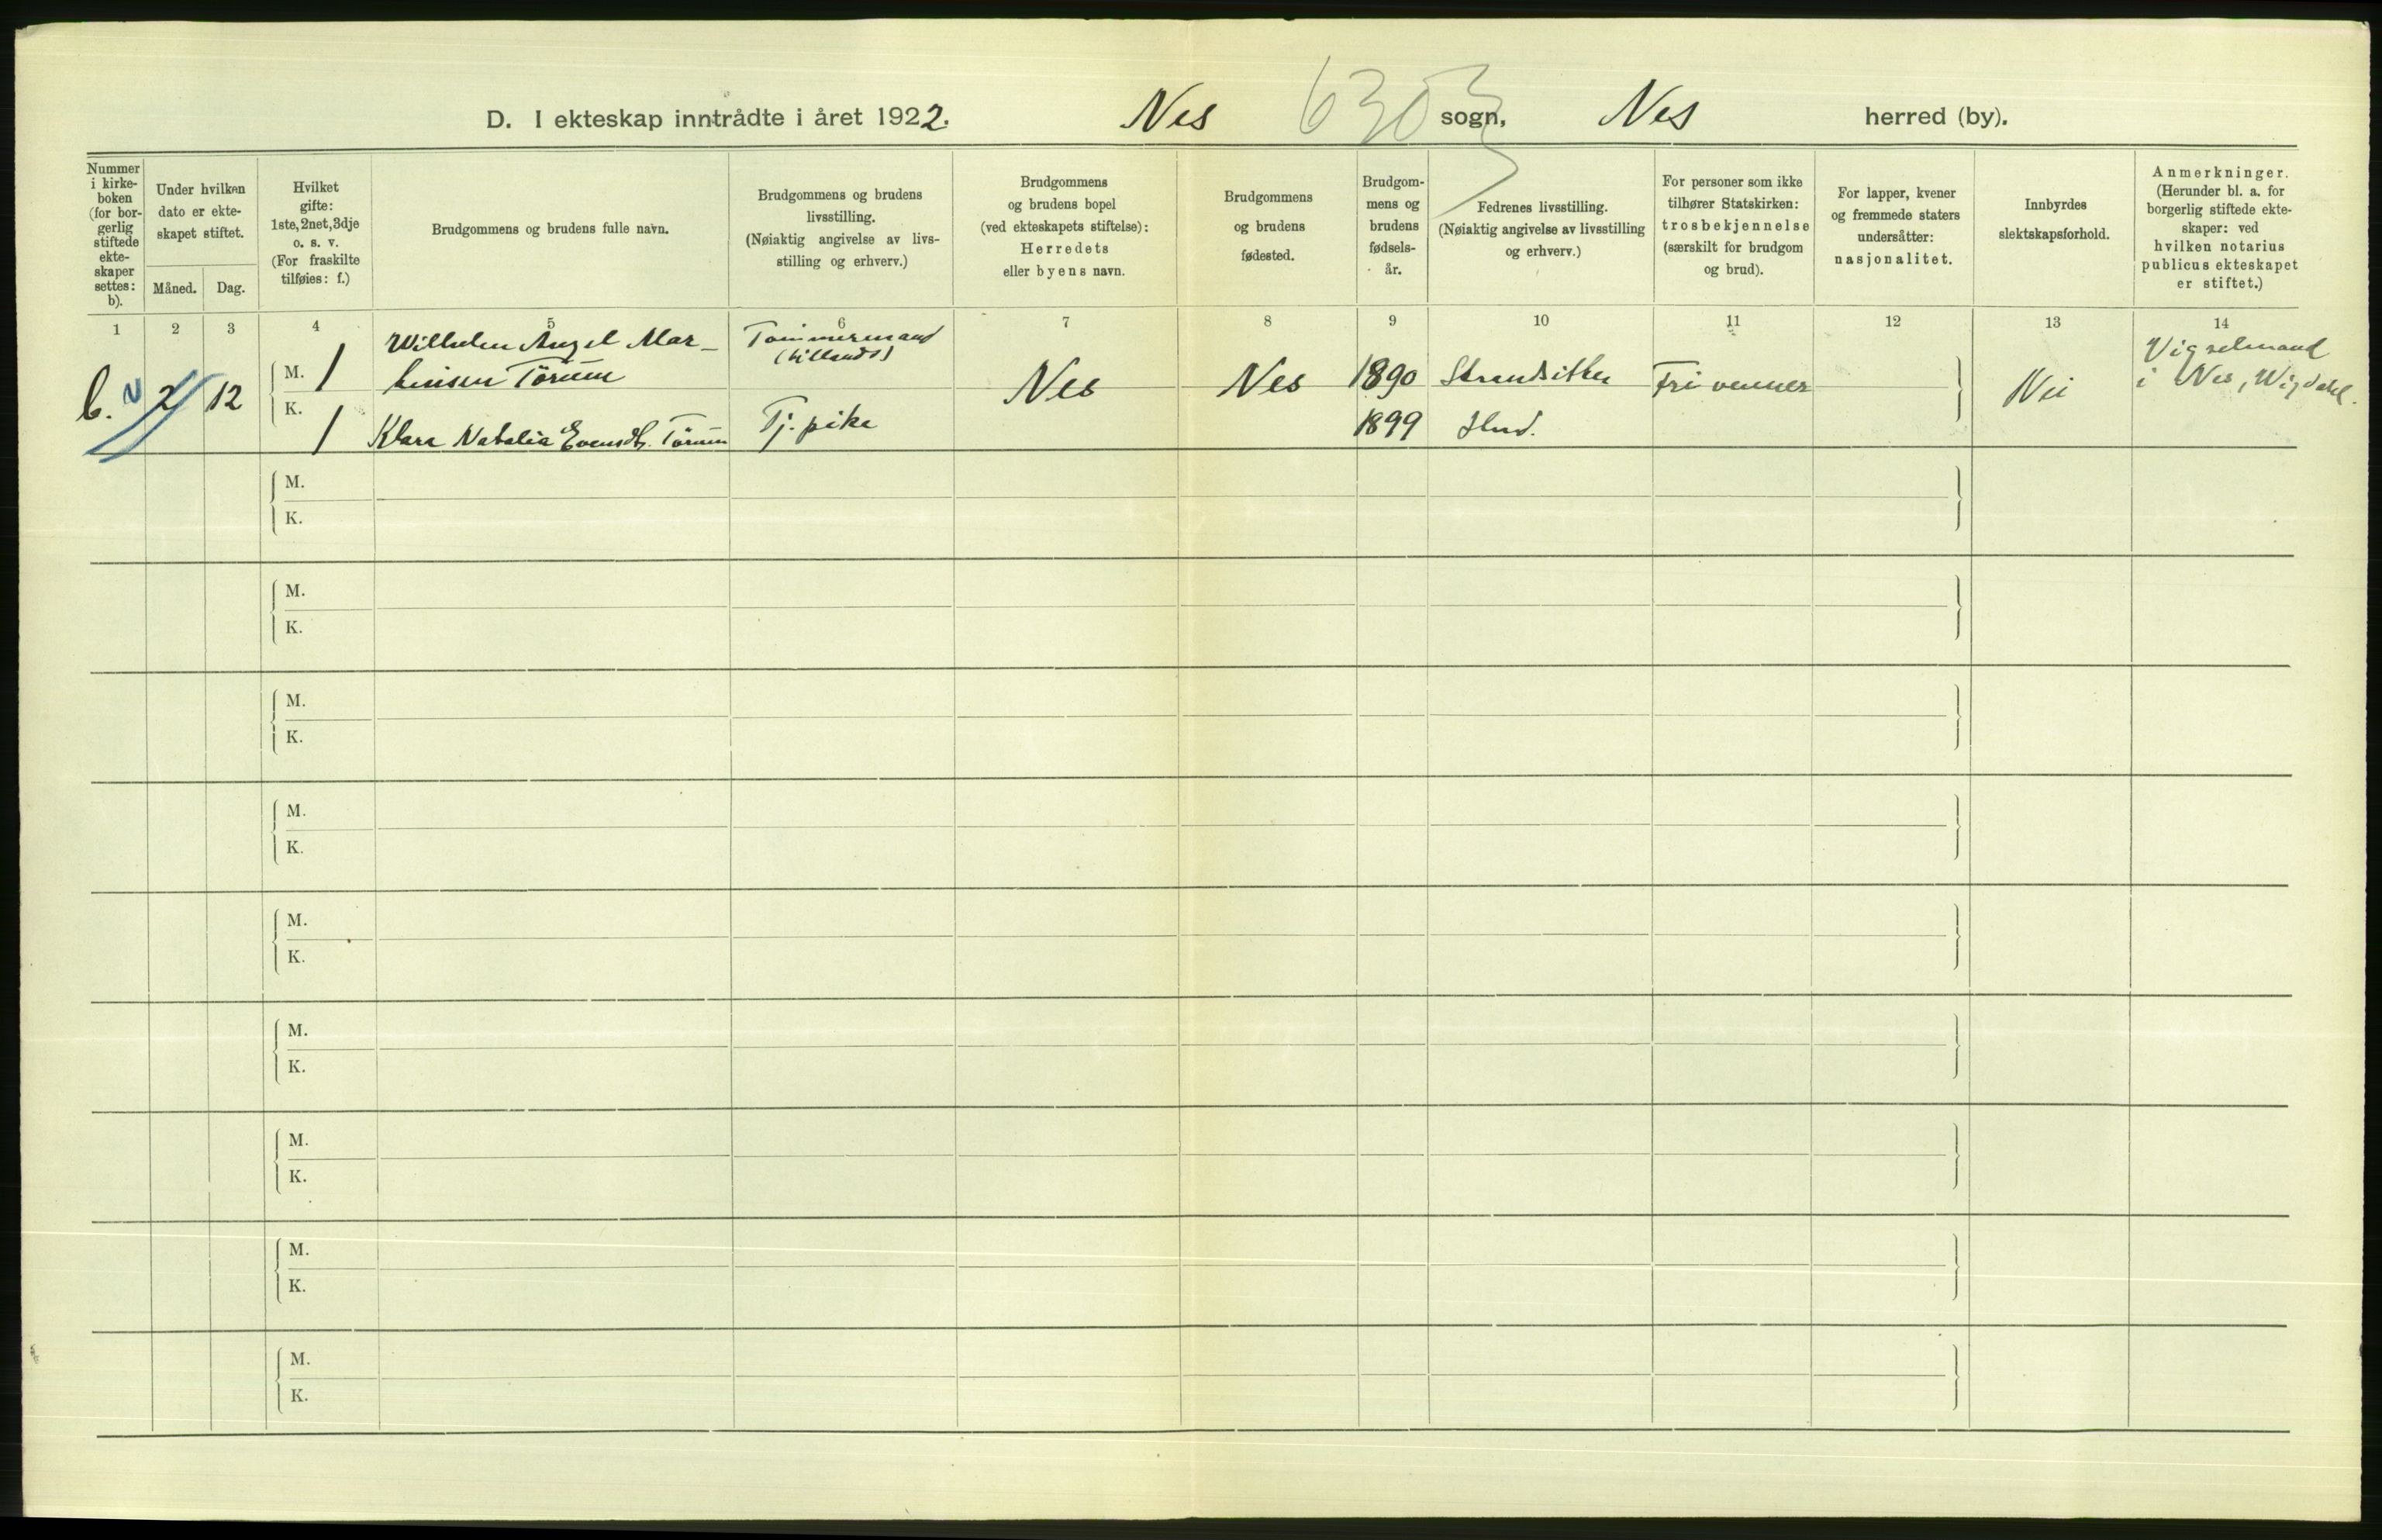 6303
D. I ekteskap inntrådte i året 1922. Nes sogn, Nes herred (by).
Nummer
i kirke-
boken
(for bor-
gerlig
stiftede
ekte-
skaper
settes:
b).
Under hvilken
dato er ekte-
skapet stiftet.
Måned. Dag.
Hvilket
gifte:
1ste, 2net, 3dje
o. s. v.
(For fraskilte
tilføies: f.)
Brudgommens og brudens fulle navn.
Brudgommens og brudens
livsstilling.
(Nøiaktig angivelse av livs-
stilling og erhverv.)
Brudgommens
og brudens bopel
(ved ekteskapets stiftelse):
Herredets
eller byens navn.
Brudgommens
og brudens
fødested.
Brudgom-
mens og
brudens
fødsels-
år.
Fedrenes livsstilling.
(Nøiaktig angivelse av livsstilling
og erhverv.)
For personer som ikke
tilhører Statskirken:
trosbekjennelse
(særskilt for brudgom
og brud).
For lapper, kvener
og fremmede staters
undersåtter:
nasjonalitet.
Innbyrdes
slektskapsforhold.
Anmerkninger.
(Herunder bl. a. for
borgerlig stiftede ekte-
skaper: ved
hvilken notarius
publicus ekteskapet
er stiftet.)
1 2 3 4 5 6 7 8 9 10 11 12 13 14
b. 2 2 12
M. 1
K. 1
Wilhelm Angel Mar-
tinisen Törum
Klara Natalia Evensdt. Törum
Tömmermand
(tillands)
Tj. pike
Nes
Nes
1890
1899
Strandsitter
Slud.
Fri venner
Nei
Vigselmand
i Nes, Wigdahl.
M.
K.
M.
K.
M.
K.
M.
K.
M.
K.
M.
K.
M.
K.
M.
K.
M.
K.